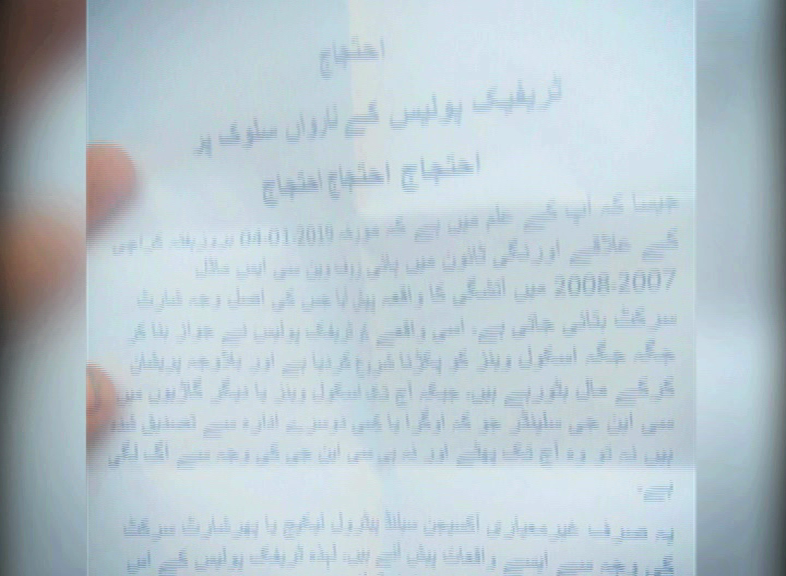 احتجاج
ٹریفیک پولیس کے نارواں سلوک پر
احتجاج احتجاج احتجاج
جیسا کہ آپ کے علم میں ہے کہ مورخہ 04-01-2019 بروزہفتہ کراچی
کے علاقے اورنگی ٹاؤن میں ہائی روف وین سی این ماڈل
2008-2007 میں آتشگی کا واقعہ پیش آیا جس کی اصل وجہ شارٹ
سرکٹ بتائی جاتی ہے۔ اسی واقعے کو ٹریفک پولیس نے جواز بنا کر
جگہ جگہ اسکول وینز کو پکڑنا شروع کردیا ہے اور بلاوجہ پریشان
کرکے مال بٹوررہے ہیں۔ جبکہ آج تک اسکول وینز یا دیگر گاڑیوں میں
سی این جی سلینڈر جو کہ اوگرا یا کسی دوسرے ادارہ سے تصدیق شدہ
ہیں نہ تو وہ آج تک پھٹے اور نہ ہی سی این جی کی وجہ سے آگ لگی
ہے۔
یہ صرف غیرمعیاری آکسیجن سیلنڈ پیٹرول لیکیج یا پھرشارٹ سرکٹ
کی وجہ سے ایسے واقعات پیش آتے ہیں۔ لہذہ ٹریفک پولیس کے اس